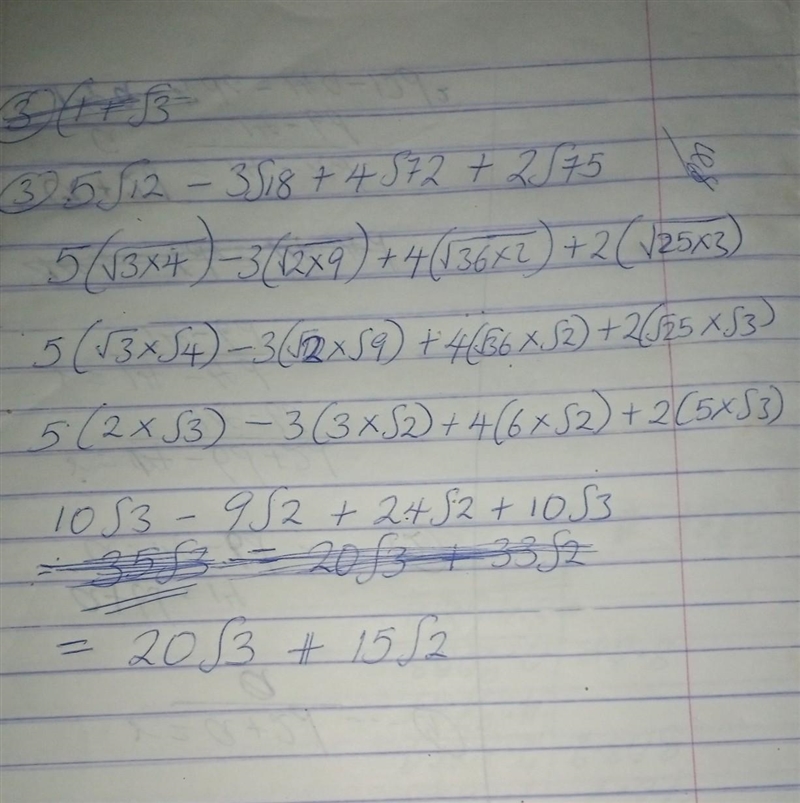 3) (1+√3
3) 5√12 - 3√18 + 4√72 + 2√75
5(√3×4) - 3(√2×9) + 4(√36×2) + 2(√25×3)
5(√3×√4) - 3(√2×√9) + 4(√36×√2) + 2(√25×√3)
5(2×√3) - 3(3×√2) + 4(6×√2) + 2(5×√3)
10√3 - 9√2 + 24√2 + 10√3
= 35√3 = 20√3 + 33√2
= 20√3 + 15√2